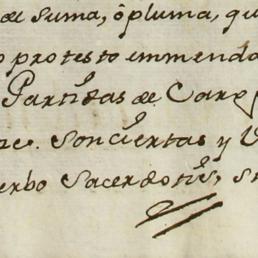 de suma, ò pluma, qu
protesto immenda
Partidas de Carg
re. Son ciertas y V
erbo Sacerdotis, s